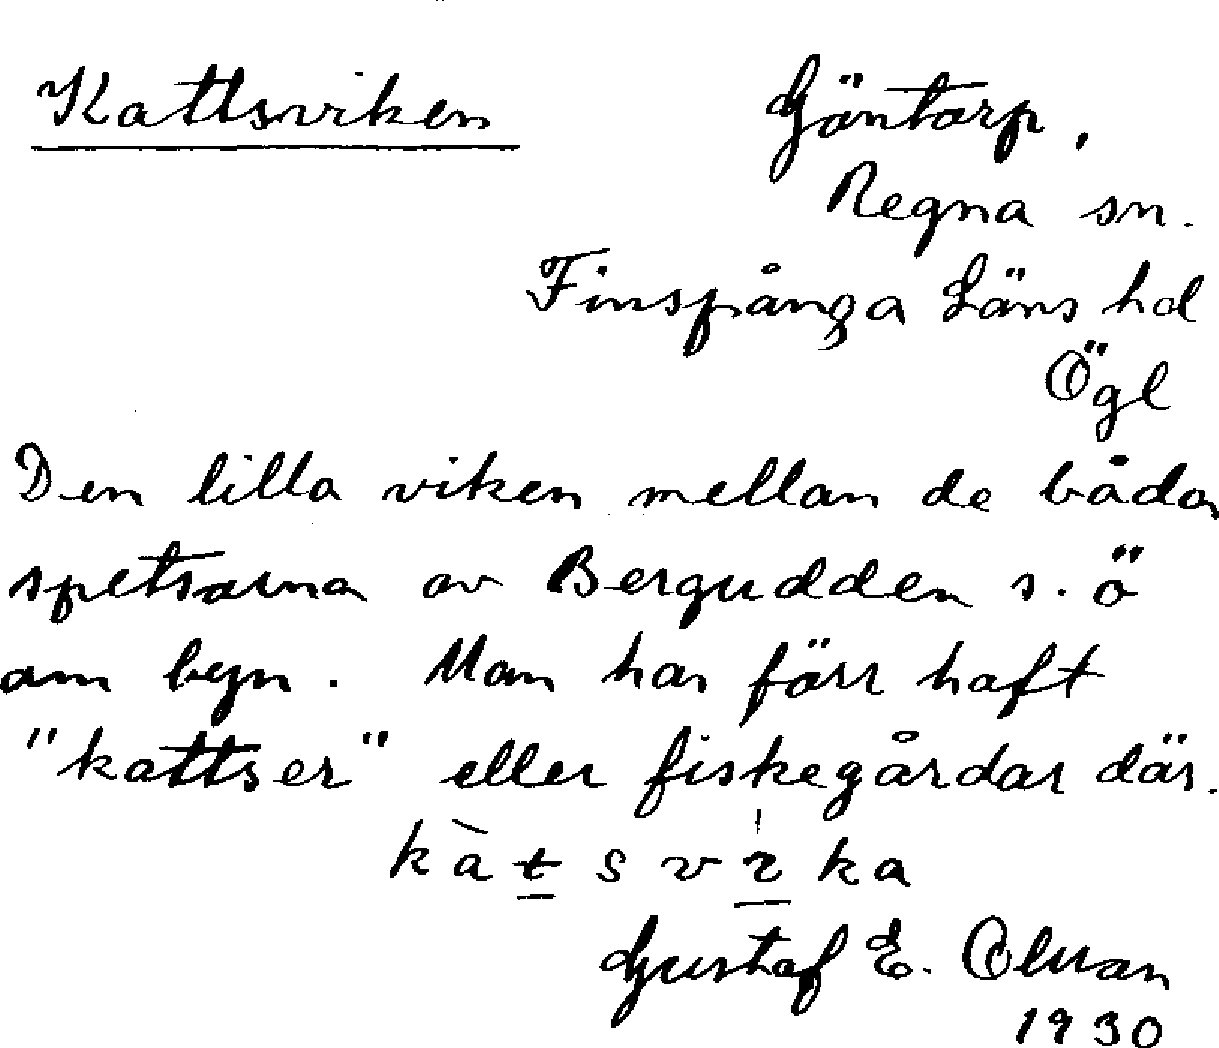 Kattsviken
Göntorp,
Regna sn.
Finspånga Läns hd
Ögl
Den lilla viken mellan de båda
spetsarna av Bergudden s. ö
om byn. Man har förr haft
"kattser" eller fiskegårdar där.
kàtsvıka
Gustaf E.
1930